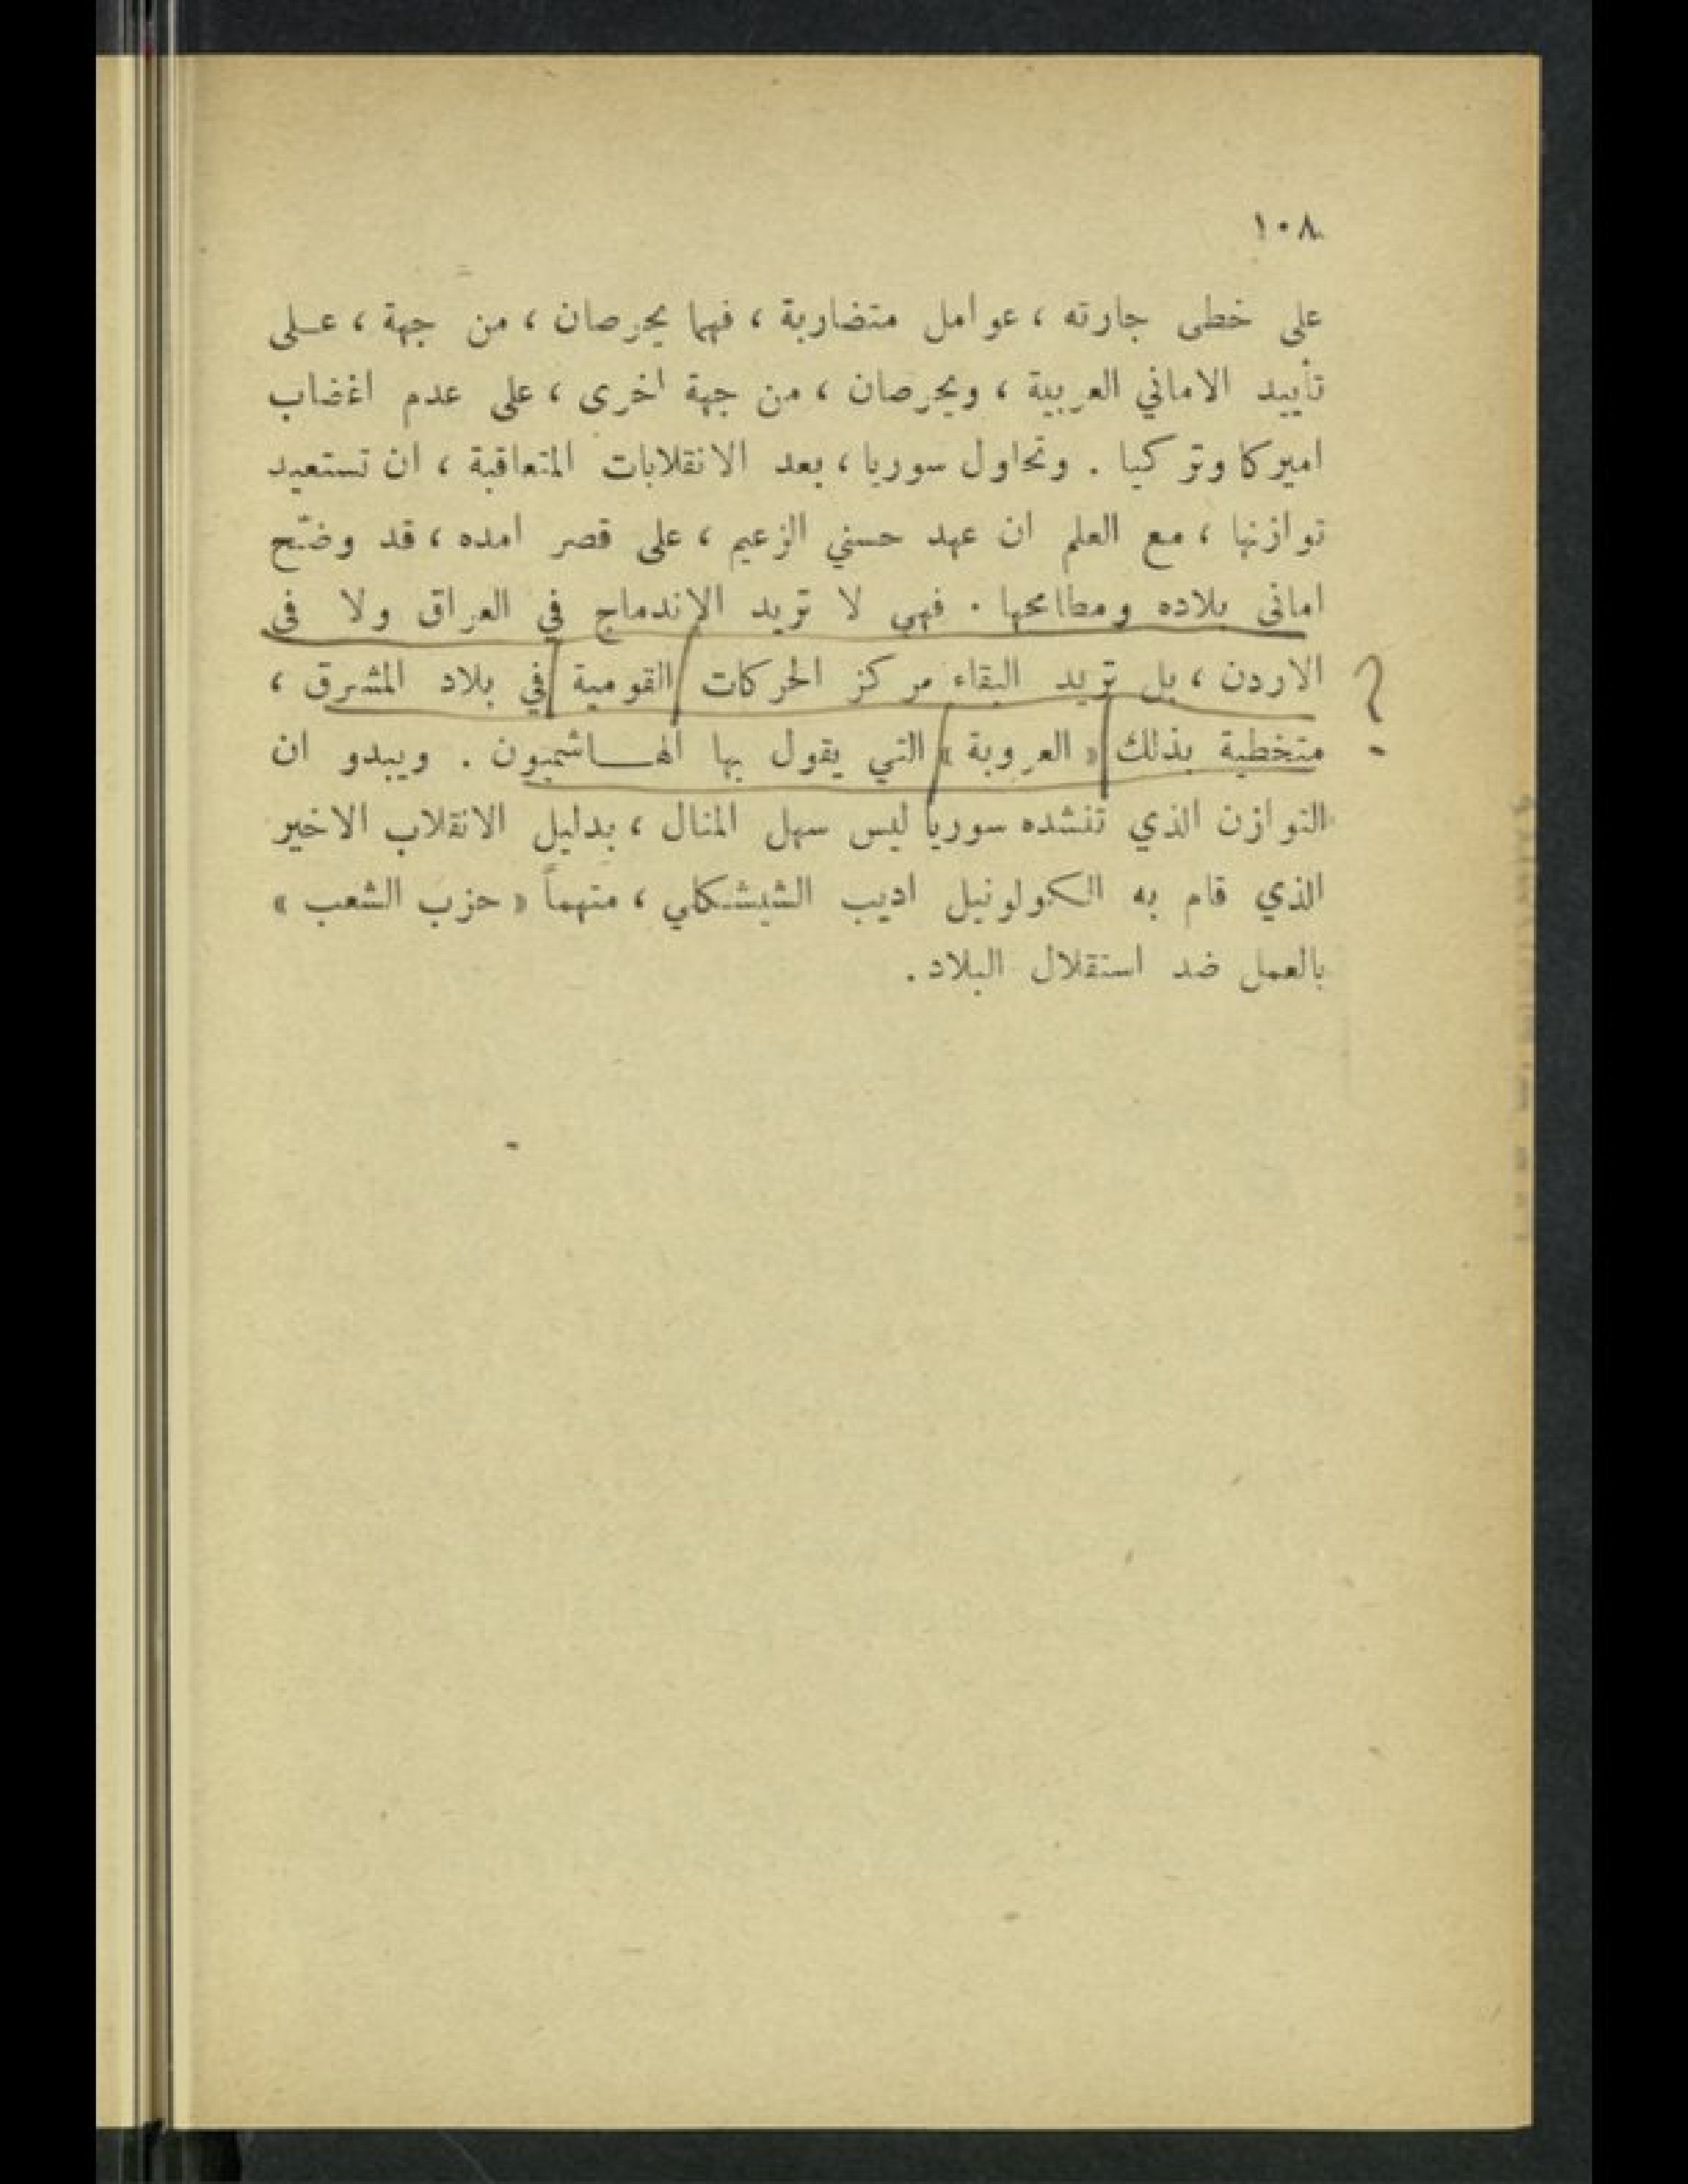 ١٠٨
على خطى جارته ، عوامل متضاربة ، فهما يحرصان ، من جهة ، عـلى
تأييد الاماني العربية ، ويحرصان ، من جهة اخرى ، على عدم اغضاب
اميركا وتركيا . وتحاول سوريا ، بعد الانقلابات المتعاقبة ، ان تستعيد
توازنها ، مع العلم ان عهد حسني الزعيم ، على قصر امده ، قد وضّح
اماني بلاده ومطامحها . فهي لا تريد الاندماج في العراق ولا في
الاردن ، بل تريد البقاء مركز الحركات القومية في بلاد المشرق ، ؟
متخطية بذلك « العروبة » التي يقول بها الهـــاشميون . ويبدو ان
التوازن الذي تنشده سوريا ليس سهل المنال ، بدليل الانقلاب الاخير
الذي قام به الكولونيل اديب الشيشكلي ، متهماً « حزب الشعب »
بالعمل ضد استقلال البلاد .